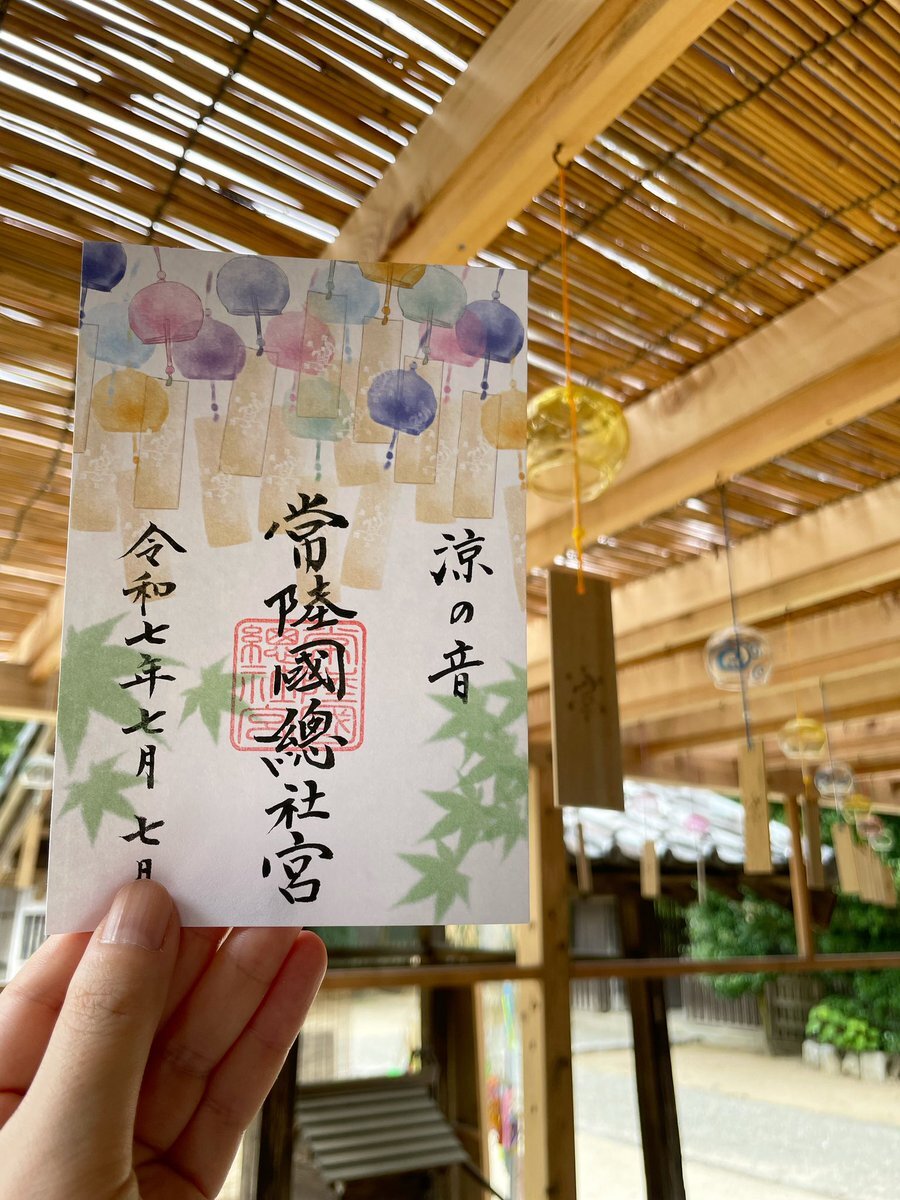 涼の音
常陸國總社宮
令和七年七月七日